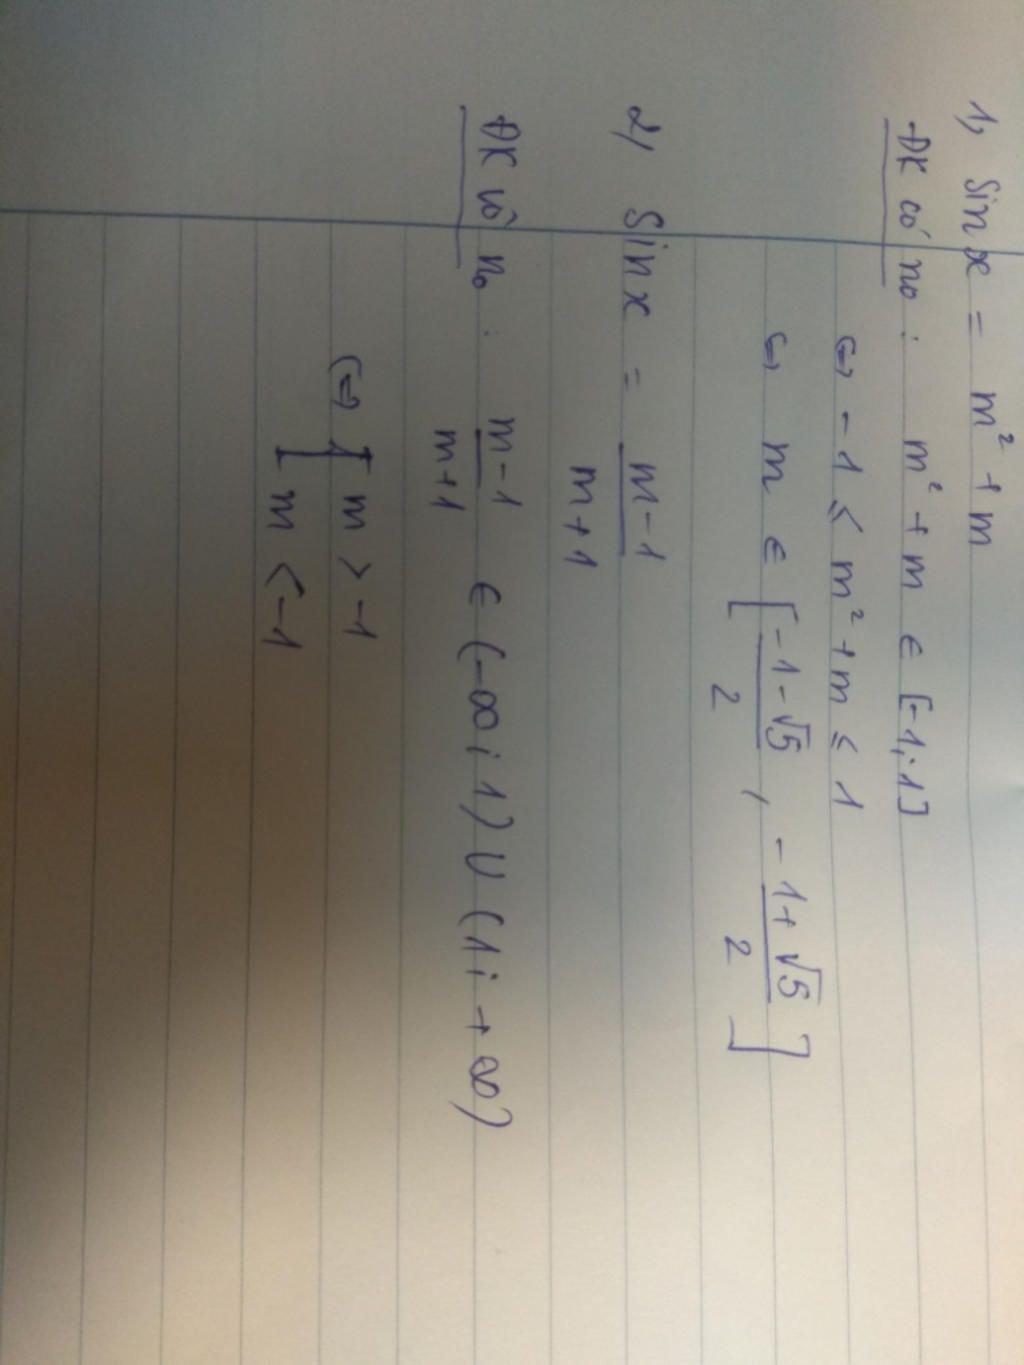 1, Sin x = m² + m
ĐK có no : m² + m ∈ [-1; 1]
⇔ -1 ≤ m² + m ≤ 1
⇔ m ∈ [(-1-√5)/2 , (-1+√5)/2]
2, Sin x = (m-1)/(m+1)
ĐK vô no : (m-1)/(m+1) ∈ (-∞; 1) ∪ (1; +∞)
⇔ [ m > -1
[ m < -1